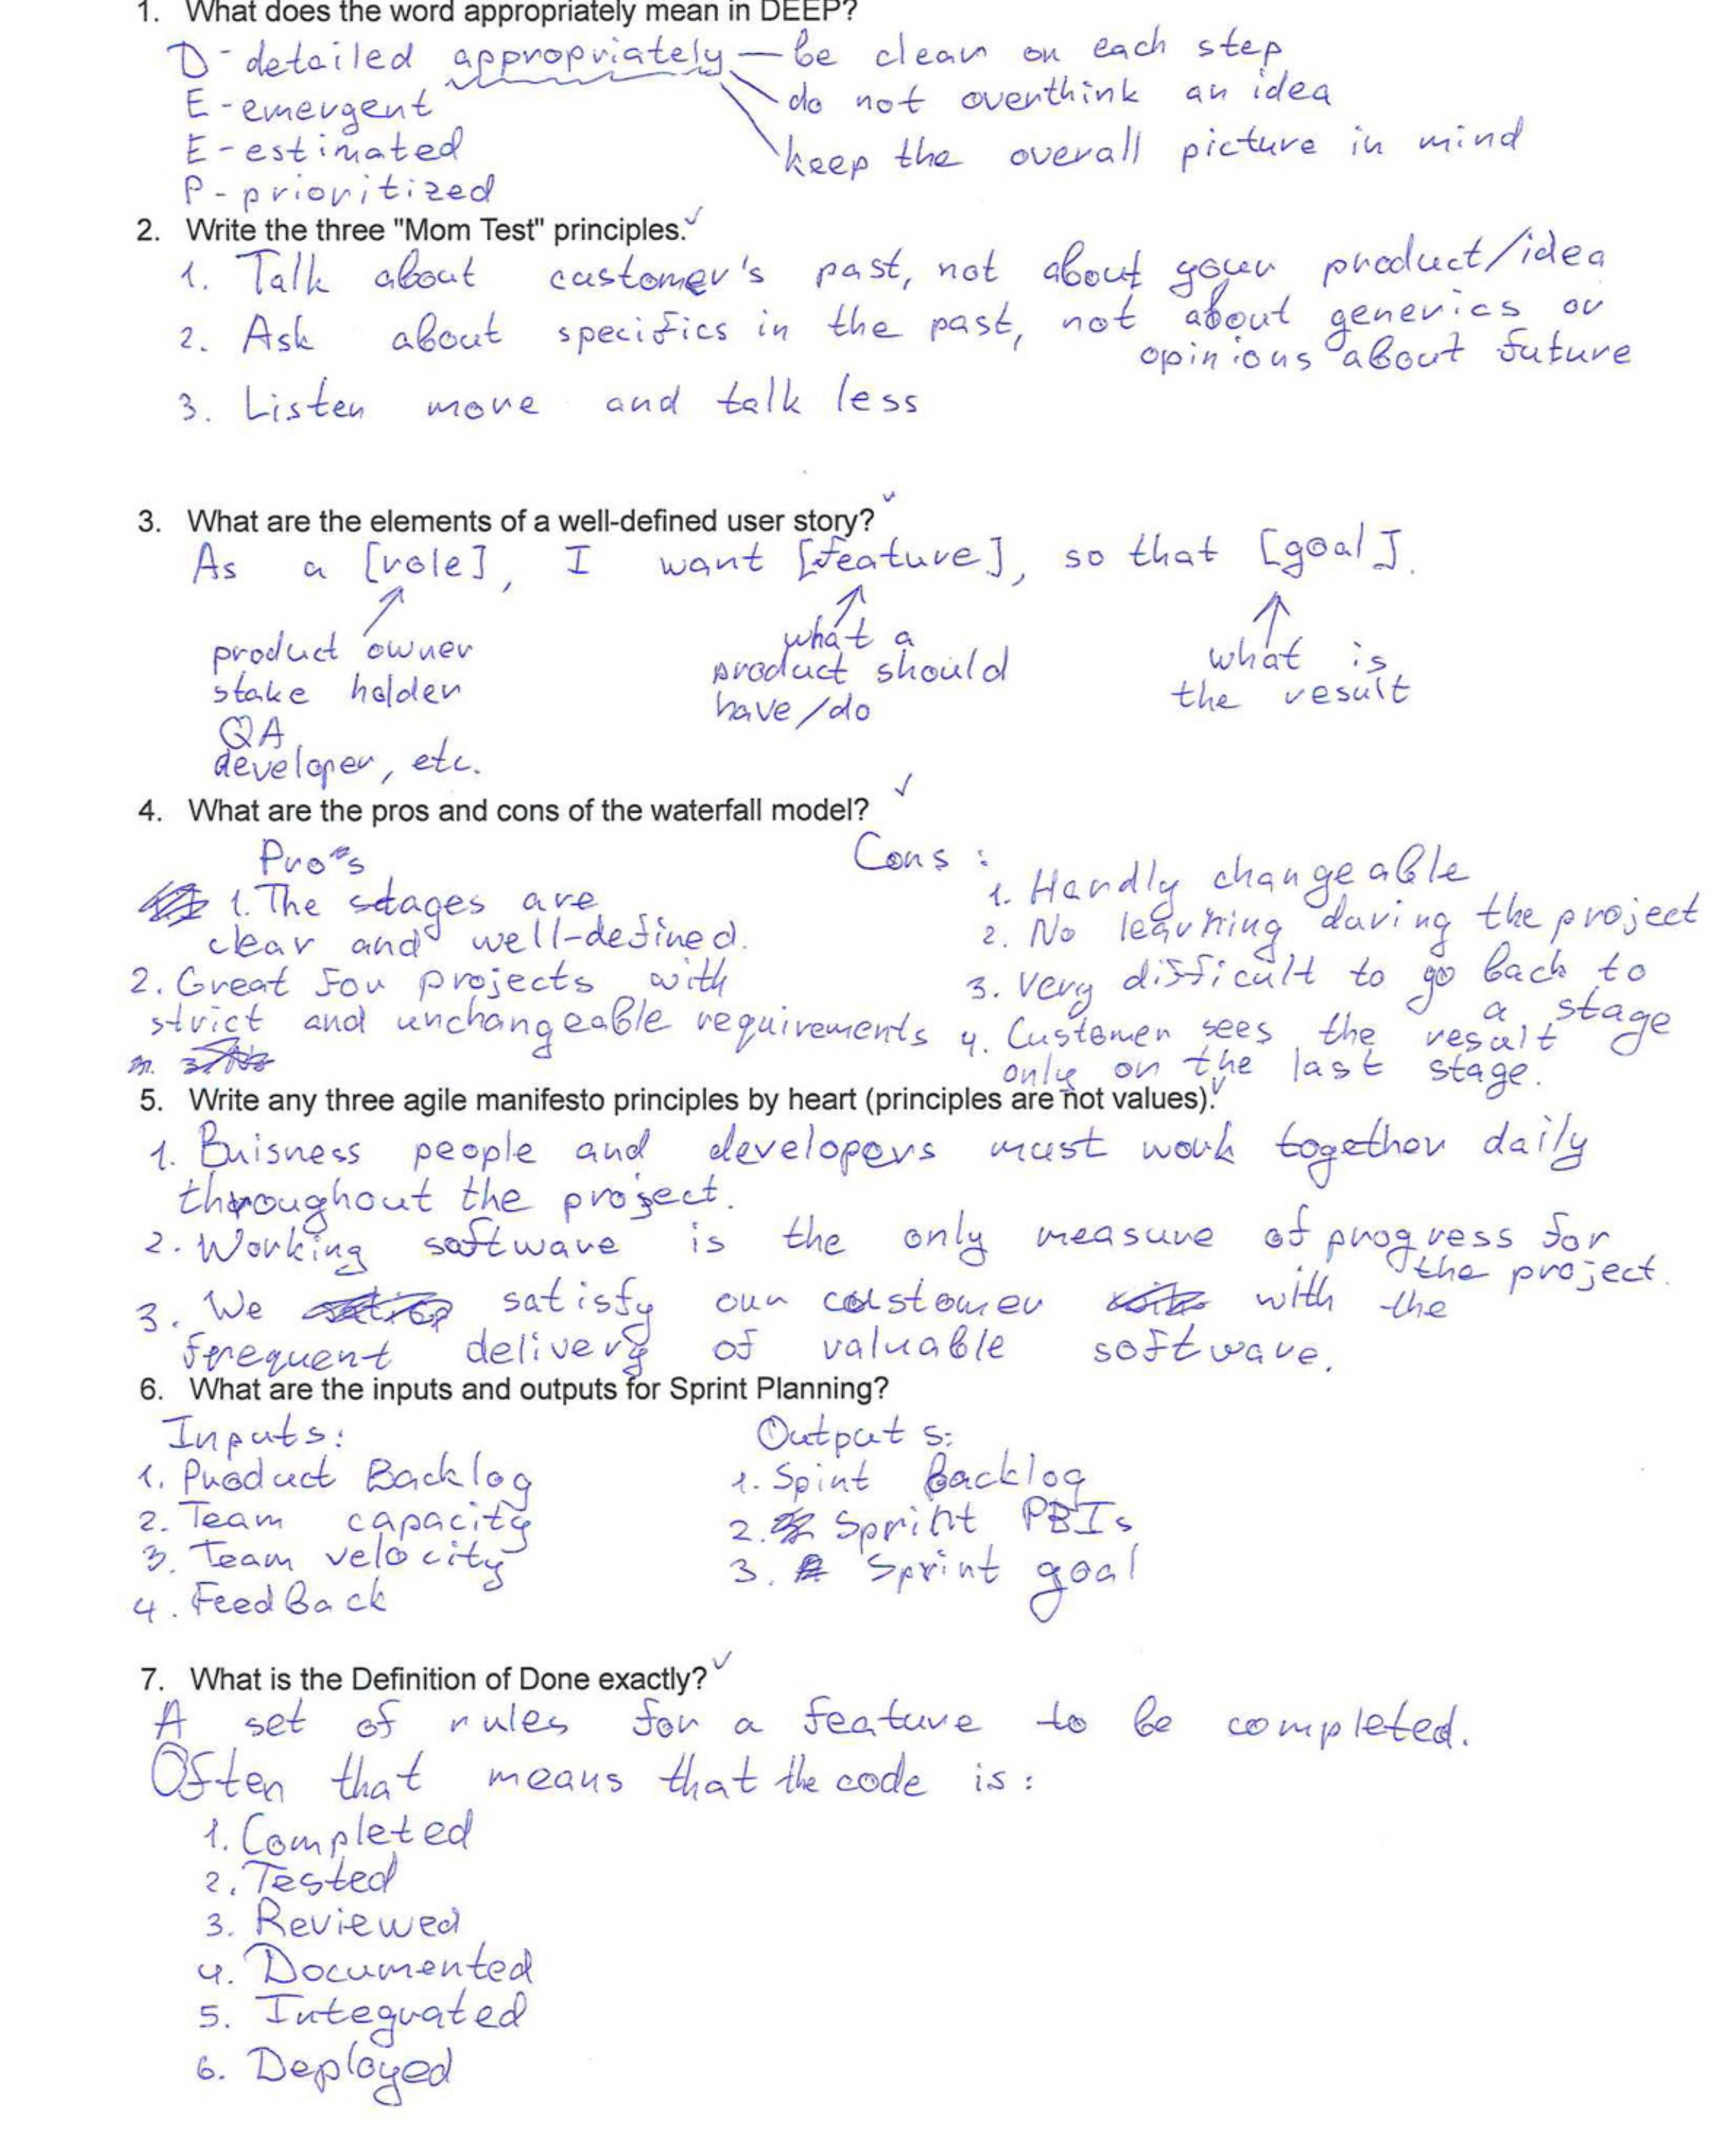 1. What does the word appropriately mean in DEEP?
D - detailed appropriately — be clear on each step
E - emergent do not overthink an idea
E - estimated keep the overall picture in mind
P - prioritized
2. Write the three "Mom Test" principles.
1. Talk about customer's past, not about your product/idea
2. Ask about specifics in the past, not about generics or
opinions about future
3. Listen more and talk less
3. What are the elements of a well-defined user story?
As a [role], I want [feature], so that [goal].
product owner
stake holder
QA
developer, etc.
what a
product should
have/do
what is
the result
4. What are the pros and cons of the waterfall model?
Pro's
1. The stages are
clear and well-defined.
2. Great for projects with
strict and unchangeable requirements
Cons:
1. Hardly changeable
2. No learning during the project
3. very difficult to go back to
a stage
4. Customer sees the result
only on the last stage.
5. Write any three agile manifesto principles by heart (principles are not values).
1. Buisness people and developers must work together daily
throughout the project.
2. Working software is the only measure of progress for
the project.
3. We satisfy our customer with the
frequent delivery of valuable software.
6. What are the inputs and outputs for Sprint Planning?
Inputs:
1. Product Backlog
2. Team capacity
3. Team velocity
4. Feedback
Outputs:
1. Spint Backlog
2. Sprint PBIs
3. Sprint goal
7. What is the Definition of Done exactly?
A set of rules for a feature to be completed.
Often that means that the code is:
1. Completed
2. Tested
3. Reviewed
4. Documented
5. Integrated
6. Deployed